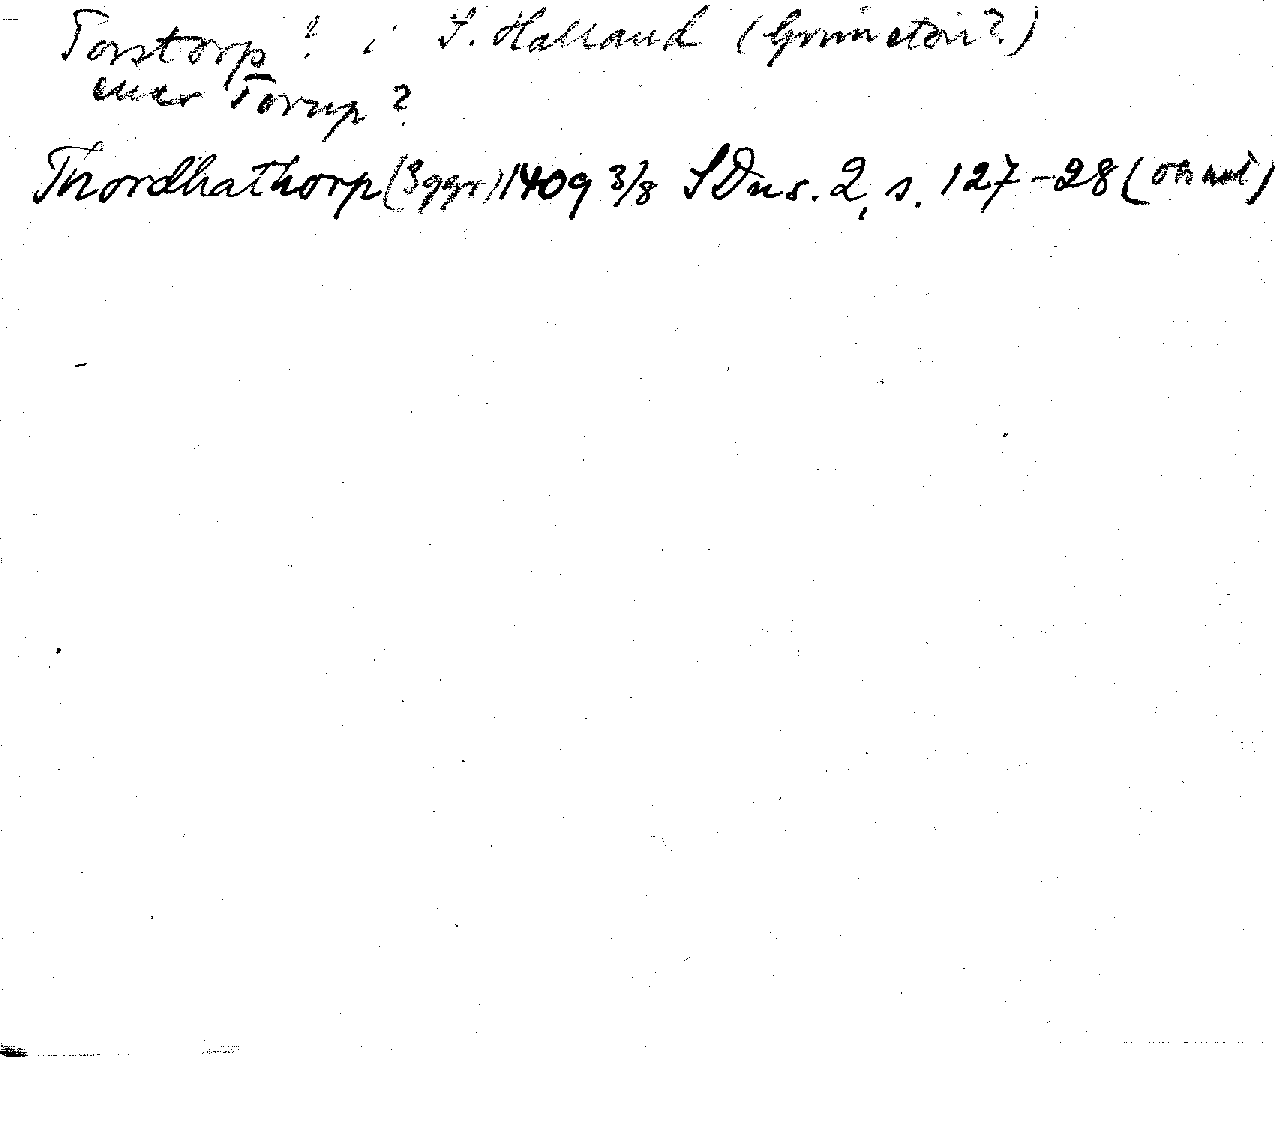 Torstorp? i S. Halland (Grimeton?)
eller Torup?
Thordhathorp (3 ggr) 1409 3/8 SDns. 2, s. 127-28 (